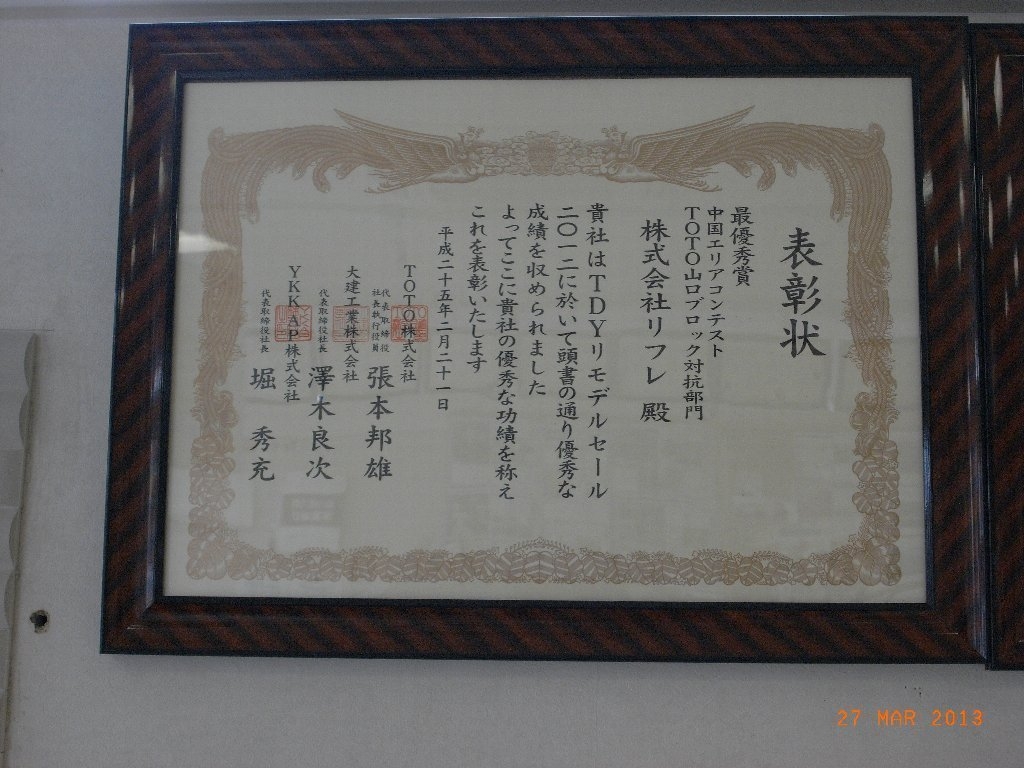 表彰状
最優秀賞
中国エリアコンテスト
TOTO山口ブロック対抗部門
株式会社リフレ 殿
貴社はTDYリモデルセール
二〇一二に於いて頭書の通り優秀な
成績を収められました
よってここに貴社の優秀な功績を称え
これを表彰いたします
平成二十五年二月二十一日
TOTO株式会社
代表取締役
社長執行役員
張本邦雄
大建工業株式会社
代表取締役社長
澤木良次
YKK AP株式会社
代表取締役社長
堀 秀充
27 MAR 2013